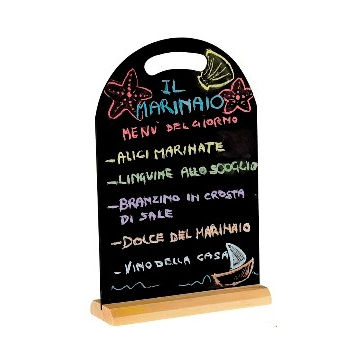 IL
MARINAIO
MENÙ DEL GIORNO
-ALICI MARINATE
-LINGUINE ALLO SCOGLIO
-BRANZINO IN CROSTA
DI SALE
-DOLCE DEL MARINAIO
-VINO DELLA CASA